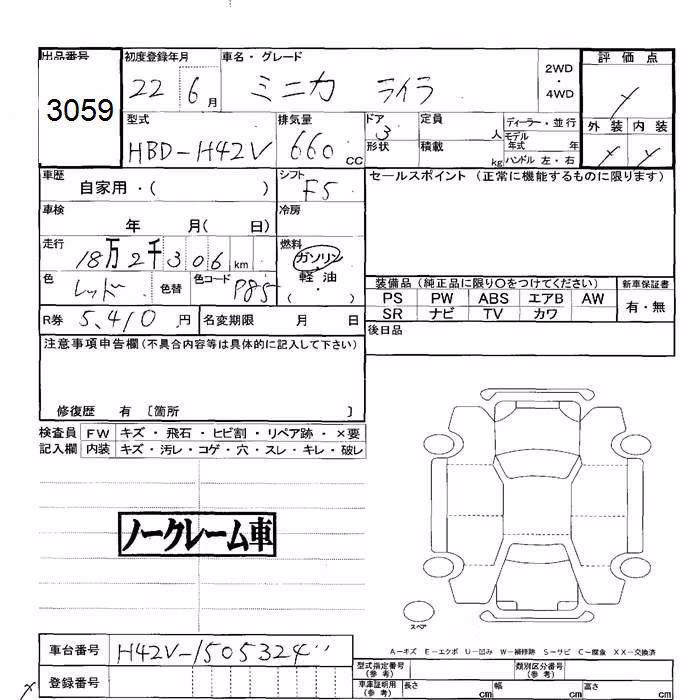 出品番号 初度登録年月 車名・グレード 2WD・4WD 評価点
3059 22 6月 ミニカ ライラ
型式 排気量 ドア 形状 定員 人 積載 kg ディーラー・並行 モデル年式 年 ハンドル 左・右 外装 内装
HBD-H42V 660cc 3
車歴 自家用・( ) シフト F5 セールスポイント(正常に機能するものに限ります)
車検 年 月( 日) 冷房
走行 18万2千306km 燃料 ガソリン・軽油・( )
色 レッド 色替 色コード P85 装備品(純正品に限り○をつけてください) 新車保証書
PS PW ABS エアB AW 有・無
SR ナビ TV カワ
R券 5,410円 名変期限 月 日 後日品
注意事項申告欄(不具合内容等は具体的に記入して下さい)
修復歴 有 〔箇所 〕
検査員 FW キズ・飛石・ヒビ割・リペア跡・×要
記入欄 内装 キズ・汚レ・コゲ・穴・スレ・キレ・破レ
ノークレーム車
スペア
A-キズ E-エクボ U-凹み W-補修跡 S-サビ C-腐食 XX-交換済
車台番号 H42V-1505324 型式指定番号(参考) 類別区分番号(参考)
登録番号 車庫証明用(参考) 長さ cm 幅 cm 高さ cm